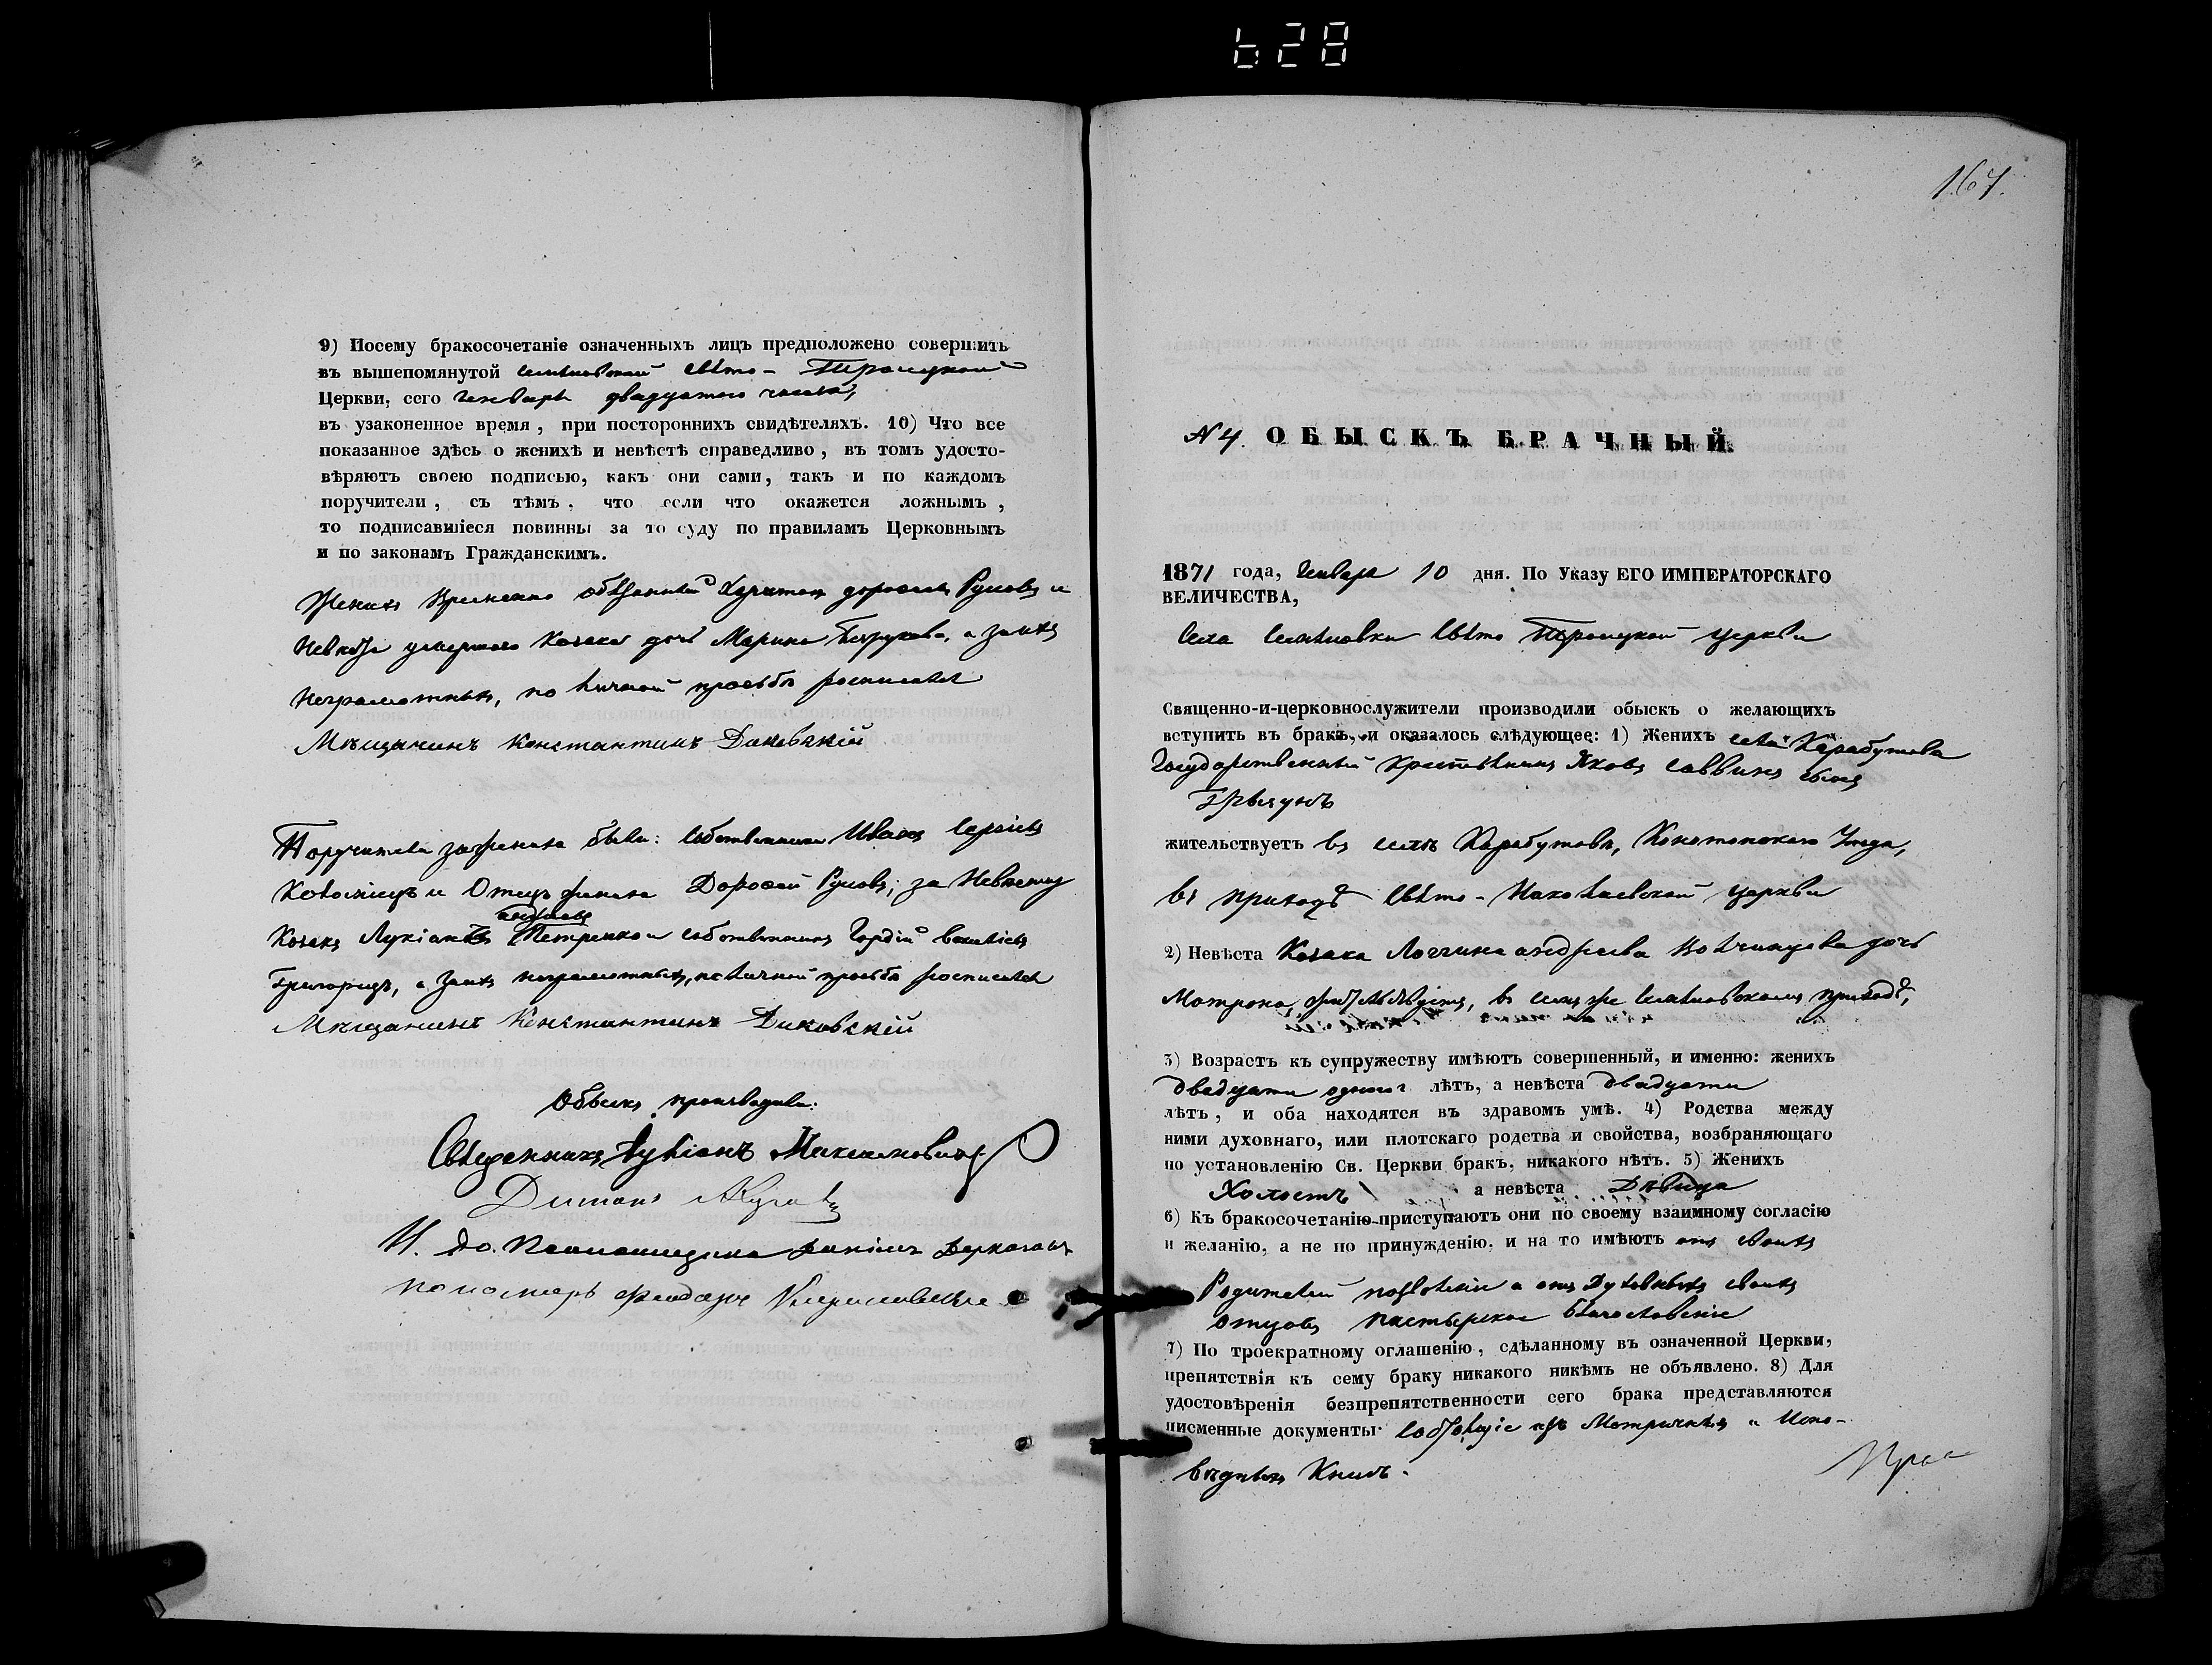 628
9) Посему бракосочетаніе означенныхъ лицъ предположено совершить
въ вышепомянутой Свято- Троицкой
Церкви, сего Генваря двадцатого числа,
въ узаконенное время, при постороннихъ свидѣтеляхъ. 10) Что все
показанное здѣсь о женихѣ и невѣстѣ справедливо, въ томъ удосто-
вѣряютъ своею подписью, какъ они сами, такъ и по каждомъ
поручители, съ тѣмъ, что если что окажется ложнымъ,
то подписавшіеся повинны за то суду по правиламъ Церковнымъ
и по законамъ Гражданскимъ.
Женихъ Временно обязанный Харитонъ Дорофеевъ и
Невеста умершаго Козака дочь Марина а за ихъ
неграмотныхъ, по личной просьбѣ росписался
Мѣщанинъ Константинъ Диковскій
Поручители за жениха были: Собственники Иванъ Сергіевъ
и Отецъ жениха Дорофей за Невѣсту
Козакъ Лукіанъ Петренко и собственникъ Гордій
а за ихъ неграмотныхъ, по личной просьбѣ росписался
Мѣщанинъ Константинъ Диковскій
Обыскъ производили:
Священникъ Лукіанъ Максимовичъ
И. До. Псаломщика
пономарь Феодоръ
167.
N 4. ОБЫСКЪ БРАЧНЫЙ.
1871 года, Генваря 10 дня. По Указу ЕГО ИМПЕРАТОРСКАГО
ВЕЛИЧЕСТВА,
Села Свято Троицкой церкви
Священно-и-церковнослужители производили обыскъ о желающихъ
вступить въ бракъ, и оказалось слѣдующее: 1) Женихъ села Карабутова
Государственный Крестьянинъ Яковъ Саввинъ сынъ
жительствуетъ въ селѣ Карабутовѣ, Конотопскаго Уезда,
въ приходѣ Свято-Николаевской церкви
2) Невѣста Козака Логгина Андреева дочь
Мотрона, жительствуетъ, въ семъ же приходѣ,
3) Возрастъ къ супружеству имѣютъ совершенный, и именно: женихъ
двадцати одного лѣтъ, а невѣста двадцати
лѣтъ, и оба находятся въ здравомъ умѣ. 4) Родства между
ними духовнаго, или плотскаго родства и свойства, возбраняющаго
по установленію Св. Церкви бракъ, никакого нѣтъ. 5) Женихъ
Холостъ а невѣста Дѣвица
6) Къ бракосочетанію приступаютъ они по своему взаимному согласію
и желанію, а не по принужденію, и на то имѣютъ отъ своихъ
Родителей позволеніе а отъ Духовныхъ своихъ
отцовъ пастырское благословеніе
7) По троекратному оглашенію, сдѣланному въ означенной Церкви,
препятствія къ сему браку никакого никѣмъ не объявлено. 8) Для
удостовѣренія безпрепятственности сего брака представляются
писменные документы Состоящіе изъ Метрическихъ и Испо-
вѣдныхъ Книгъ.